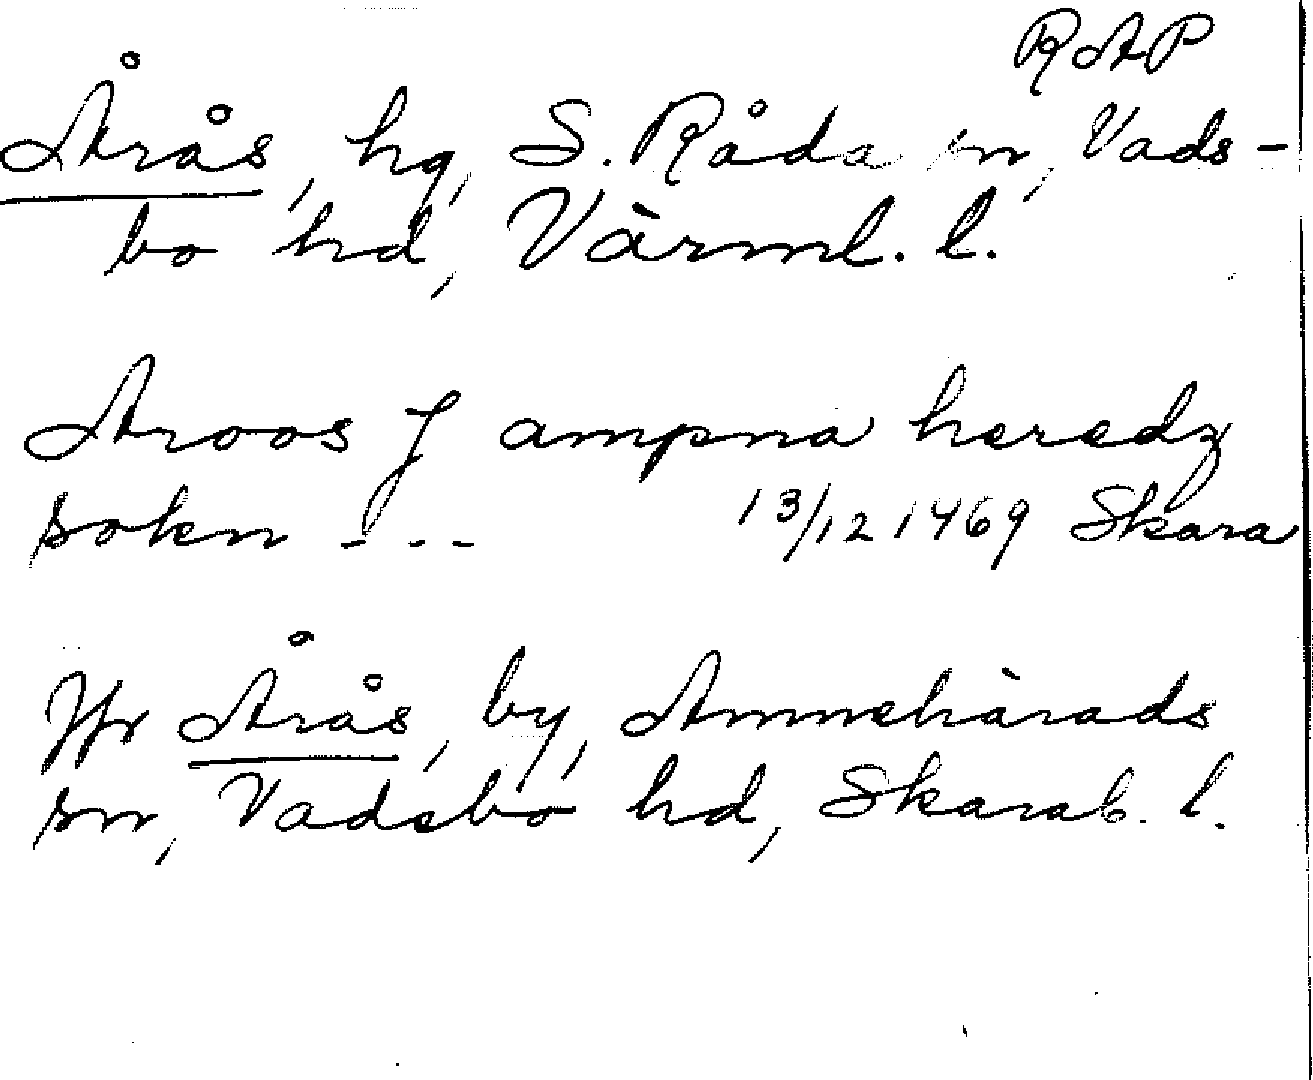 RAP
Årås, hg, S. Råda sn, Vads-
bo hd, Värml. l.
Aroos J ampna heredz
sokn - - - 13/12 1469 Skara
Jfr Årås, by, Amnehärads
sn, Vadsbo hd, Skarab. l.